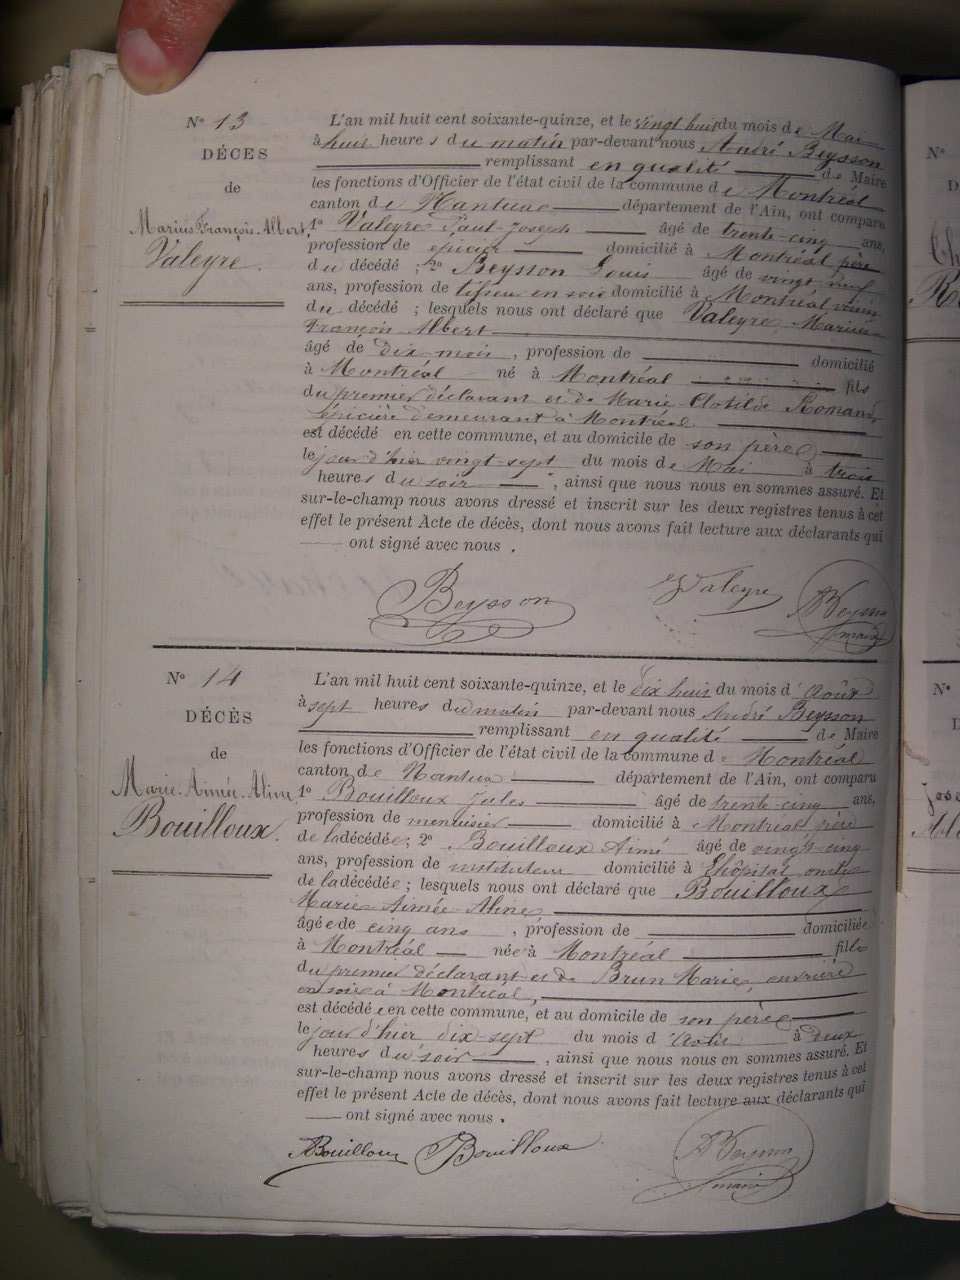 N° 13
DÉCES
de
Marius François Albert
Valeyre.
L'an mil huit cent soixante-quinze, et le vingt huit du mois de Mai
à huit heures du matin par-devant nous André Beysson
remplissant en qualité de Maire
les fonctions d'Officier de l'état civil de la commune de Montréal
canton de Nantua département de l'Ain, ont comparu
1° Valeyre Paul Joseph âgé de trente-cinq ans,
profession de épicier domicilié à Montréal père
du décédé ; 2° Beysson Louis âgé de vingt neuf
ans, profession de tisseur en soie domicilié à Montréal voisin
du décédé ; lesquels nous ont déclaré que Valeyre Marius
François Albert
âgé de dix mois, profession de domicilié
à Montréal né à Montréal fils
du premier déclarant et de Marie Clotilde Romand,
épicière demeurant à Montréal
est décédé en cette commune, et au domicile de son père
le jour d'hier vingt-sept du mois de Mai à trois
heures du soir, ainsi que nous nous en sommes assuré. Et
sur-le-champ nous avons dressé et inscrit sur les deux registres tenus à cet
effet le présent Acte de décès, dont nous avons fait lecture aux déclarants qui
ont signé avec nous.
Beysson Valeyre A Beysson
maire
N° 14
DÉCÈS
de
Marie Aimée Aline
Bouilloux.
L'an mil huit cent soixante-quinze, et le dix huit du mois d'Août
à sept heures du matin par-devant nous André Beysson
remplissant en qualité de Maire
les fonctions d'Officier de l'état civil de la commune de Montréal
canton de Nantua département de l'Ain, ont comparu
1° Bouilloux Jules âgé de trente-cinq ans,
profession de menuisier domicilié à Montréal père
de la décédée; 2° Bouilloux Aimé âgé de vingt-cinq
ans, profession de instituteur domicilié à l'hôpital oncle
de la décédée ; lesquels nous ont déclaré que Bouilloux
Marie Aimée Aline
âgée de cinq ans, profession de domiciliée
à Montréal née à Montréal fille
du premier déclarant et de Brun Marie, ouvrière
en soie à Montréal,
est décédée en cette commune, et au domicile de son père
le jour d'hier dix-sept du mois d'Août à deux
heures du soir, ainsi que nous nous en sommes assuré. Et
sur-le-champ nous avons dressé et inscrit sur les deux registres tenus à cet
effet le présent Acte de décès, dont nous avons fait lecture aux déclarants qui
ont signé avec nous.
A Bouilloux J Bouilloux A Beysson
maire
N°
N°